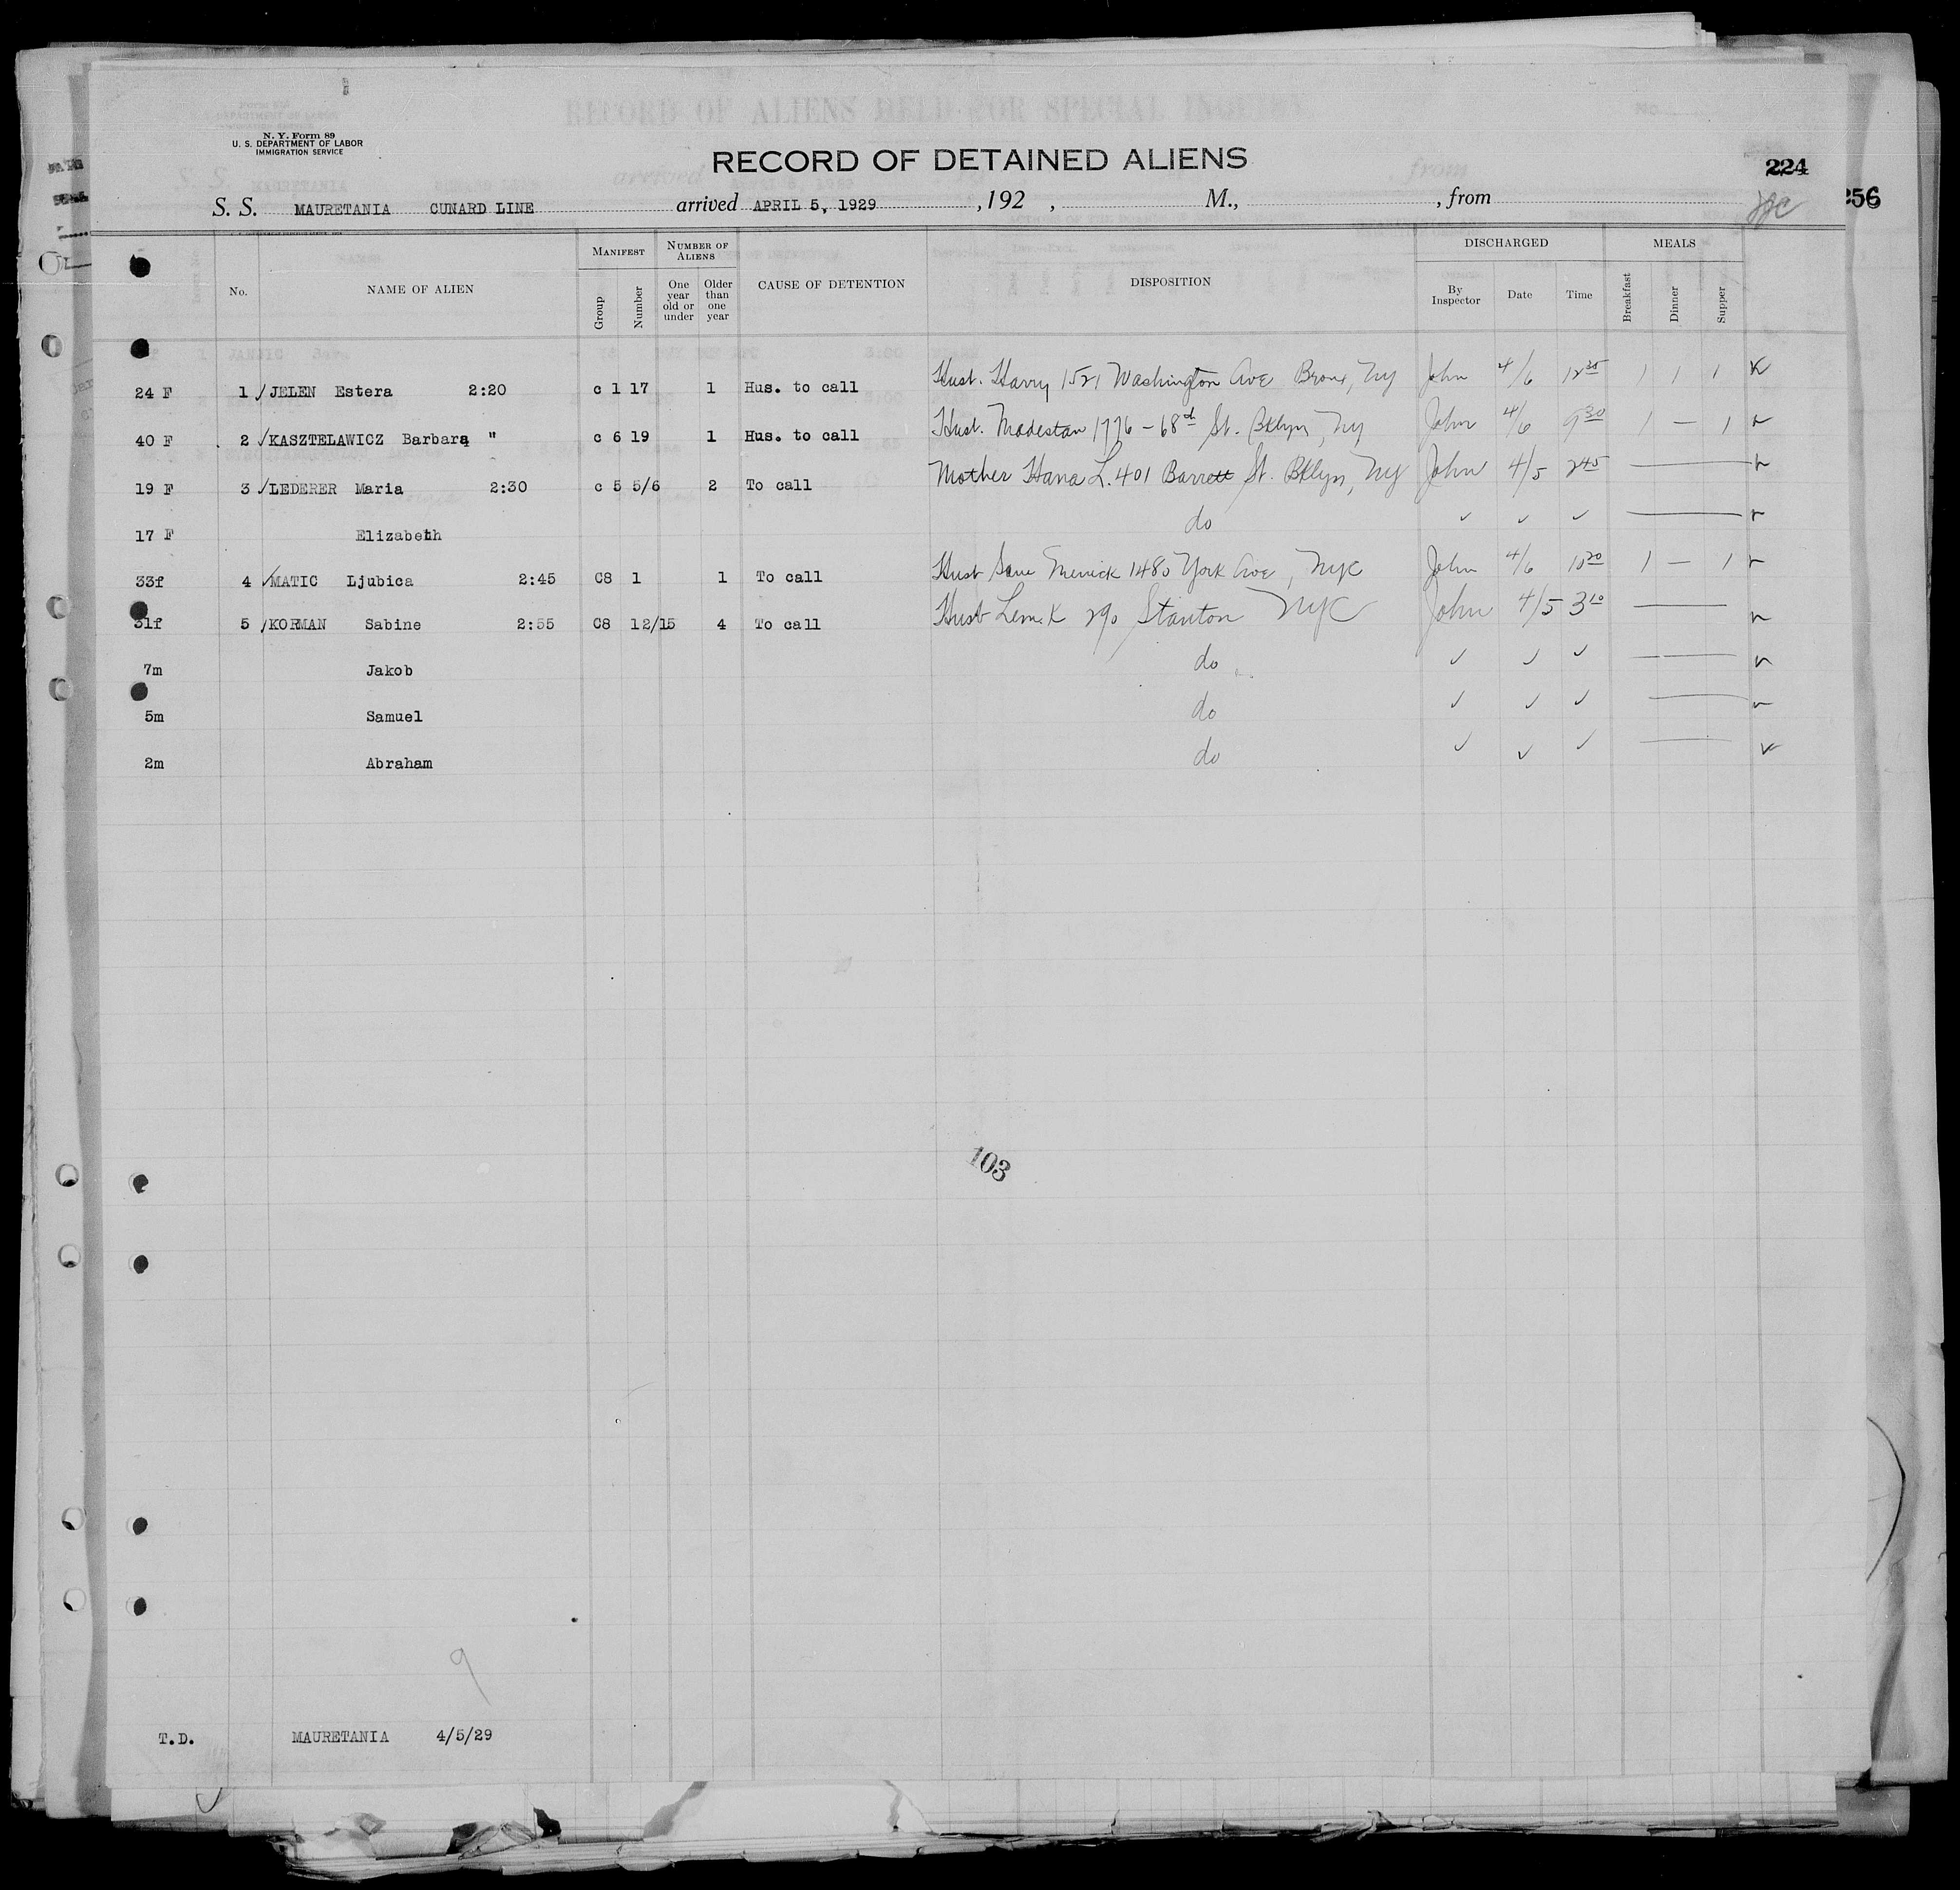 N. Y. Form 89
U. S. DEPARTMENT OF LABOR
IMMIGRATION SERVICE
RECORD OF DETAINED ALIENS
224
256
S. S. MAURETANIA CUNARD LINE arrived APRIL 5, 1929 , 192 , M., , from
No. NAME OF ALIEN MANIFEST Group Number NUMBER OF ALIENS One year old or under Older than one year CAUSE OF DETENTION DISPOSITION DISCHARGED By Inspector Date Time MEALS Breakfast Dinner Supper
24 F 1 ✓ JELEN Estera 2:20 c 1 17 1 Hus. to call Husb. Harry 1521 Washington Ave Bronx, NY John 4/6 12 35 1 1 1
40 F 2 ✓ KASZTELAWICZ Barbara " c 6 19 1 Hus. to call Husb. Modestan 1776 - 68th St. Bklyn, NY John 4/6 9 30 1 — 1
19 F 3 ✓ LEDERER Maria 2:30 c 5 5/6 2 To call Mother Hana L. 401 Barrett St. Bklyn, NY John 4/5 2 45 —
17 F Elizabeth do ✓ ✓ ✓ —
33f 4 ✓ MATIC Ljubica 2:45 C8 1 1 To call Husb 1480 York Ave, NYC John 4/6 10 20 1 — 1
31f 5 ✓ KORMAN Sabine 2:55 C8 12/15 4 To call Husb K 290 Stanton NYC John 4/5 3 10 —
7m Jakob do ✓ ✓ ✓ —
5m Samuel do ✓ ✓ ✓ —
2m Abraham do ✓ ✓ ✓ —
103
9
T.D. MAURETANIA 4/5/29